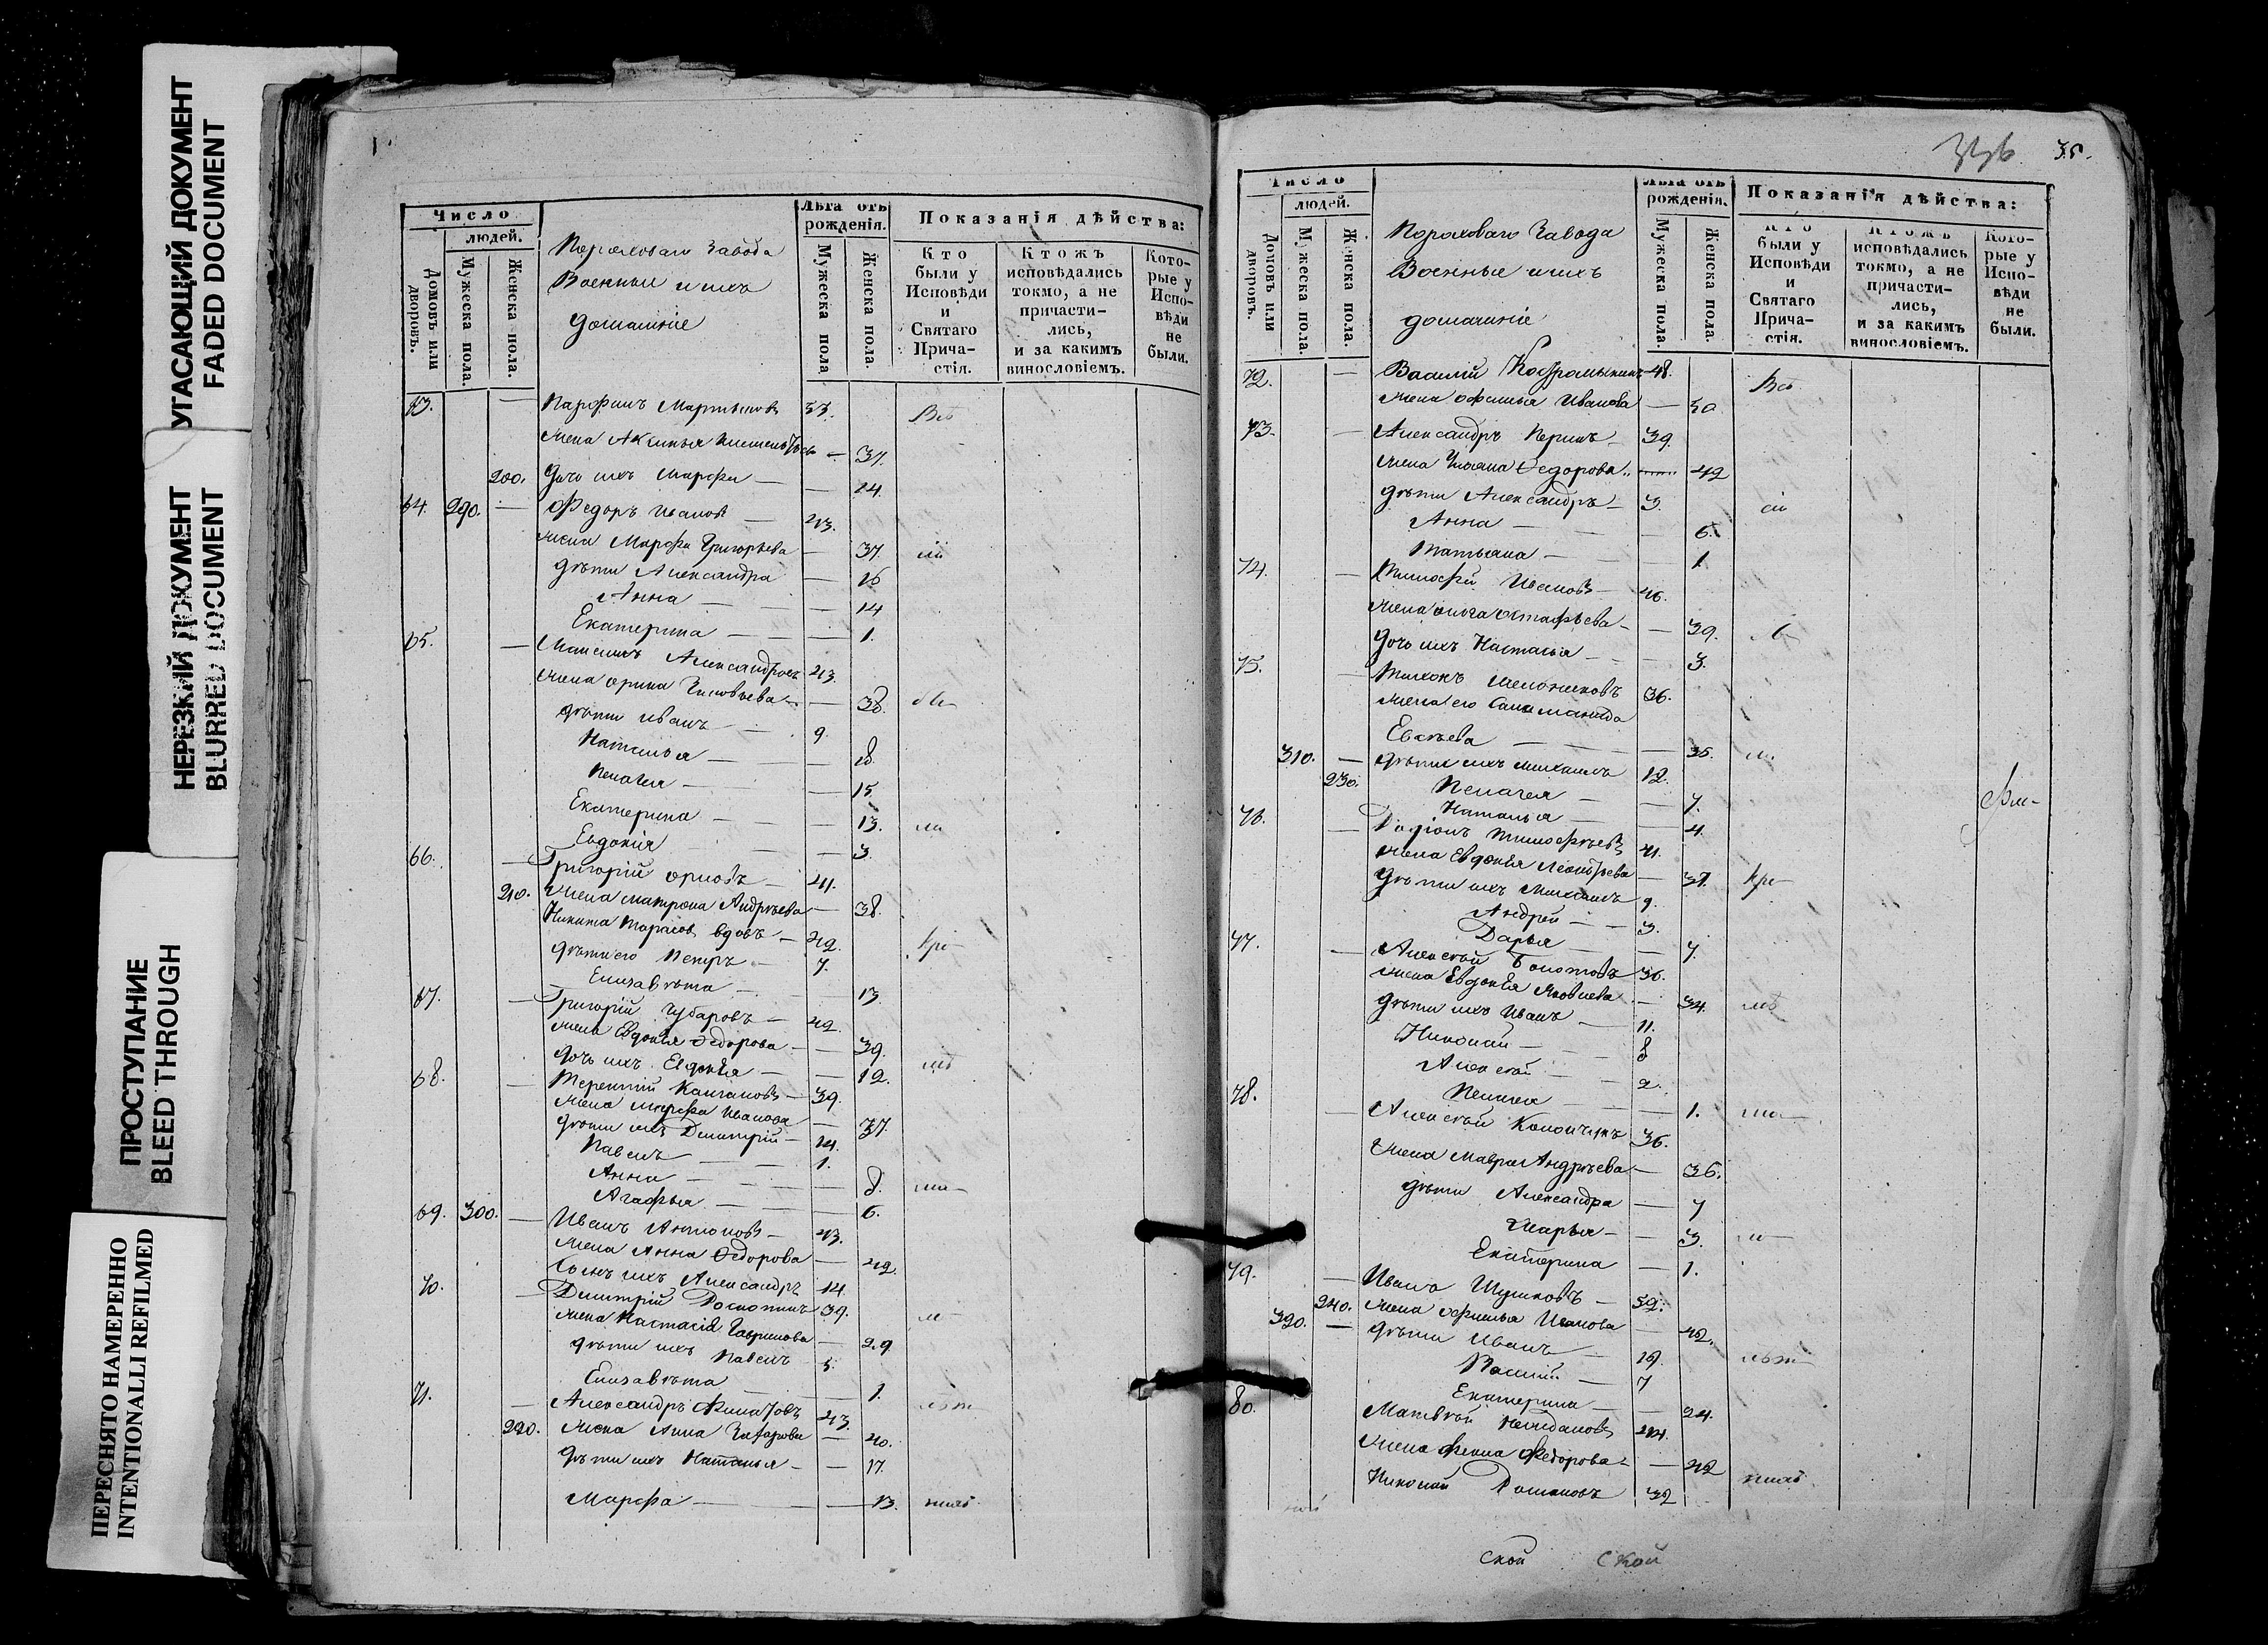 УГАСАЮЩИЙ ДОКУМЕНТ
FADED DOCUMENT
НЕРЕЗКИЙ ДОКУМЕНТ
BLURRED DOCUMENT
ПРОСТУПАНИЕ
BLEED THROUGH
ПЕРЕСНЯТО НАМЕРЕННО
INTENTIONALLI REFILMED
Число
людей.
Домовъ или дворовъ.
Мужеска пола.
Женска пола.
Пороховаго Завода
Военные и ихъ
домашніе
Лѣта отъ рожденія.
Мужеска пола
Женска пола.
Показанія дѣйства:
Кто были у Исповѣди и Святаго Причастія.
Ктожъ исповѣдались токмо, а не причастились, и за какимъ винословіемъ.
Которые у Исповѣди не были.
63. — Парфенъ Мартыновъ 53. Всѣ
жена Аксинья — 37.
200. дочь ихъ Марфа — 14
64. 290. — Федоръ Ивановъ — 43.
жена Марфа Григорьева — 37.
дѣти Александра — 16
Анна — 14
Екатерина — 1.
65. — Максимъ Александровъ 43.
жена Орина — 38.
дѣти Иванъ — 9.
Наталья — 18.
Пелагея — 15
Екатерина — 13.
Евдокія — 3.
66. — Григорій Орловъ — 41.
210. жена Матрона Андрѣева — 38.
Никита Тарасовъ вдовъ — 42.
дѣти его Петръ — 7.
Елизавѣта — 13
67. — Григорій Чубаровъ — 42.
жена Евдокія Федорова — 39.
дочь ихъ Евдокія — 12.
68. — Терентій 39.
жена Марфа Иванова — 37.
дѣти ихъ Дмитрій — 14.
Павелъ — 1.
Анна — 8.
Агафья — 6.
69. 300. — Иванъ Антоновъ — 43.
жена Анна Федорова — 42.
сынъ ихъ Александръ 14
70. — Дмитрій 39.
жена Настасія Гаврилова — 29
дѣти ихъ Павелъ 5.
Елизавѣта — 1.
71. — Александръ Филатовъ 43.
220. жена Анна — 40.
дѣти ихъ Наталья — 17.
Марфа — 13.
336 35.
Число
людей.
Домовъ или дворовъ.
Мужеска пола.
Женска пола.
Пороховаго Завода
Военные и ихъ
домашніе
Лѣта отъ рожденія.
Мужеска пола.
Женска пола.
Показанія дѣйства:
Кто были у Исповѣди и Святаго Причастія.
Ктожъ исповѣдались токмо, а не причастились, и за какимъ винословіемъ.
Которые у Исповѣди не были.
72. — Василій 48. Всѣ
жена Офимья Иванова — 50
73. — Александръ 39.
жена Ульяна Федорова 42
дѣти Александръ — 3.
Анна — 6.
Татьяна — 1.
74. — Тимофей Ивановъ — 46.
жена Ольга Остафьева — 39.
дочь ихъ Настасья — 3.
75. — Тихонъ Мелониковъ 36.
жена его
Евсѣева — 35.
310. — дѣти ихъ Михаилъ 12.
230. Пелагея — 7.
Наталья — 4.
76. — Тимофѣевъ 41.
жена Евдокія Леонтьева — 37.
дѣти ихъ Михаилъ 9.
Андрей — 3.
Дарья — 7.
77. — Алексѣй Болотовъ 36.
жена Евдокія Яковлева — 34.
дѣти ихъ Иванъ — 11.
Николай — 8
Алексѣй — 2.
Пелагея — 1.
78. — Алексѣй 36.
жена Мавра Андрѣева — 36.
дѣти Александра — 7
Марья — 3.
Екатерина — 1.
79. — Иванъ 52.
240. жена Офимья Иванова — 42.
320. — дѣти Иванъ — 12.
Василій — 7
Екатерина — 24.
80. Матвѣй 44.
жена Фекла Федорова — 42
Николай Романовъ 32
ской ской